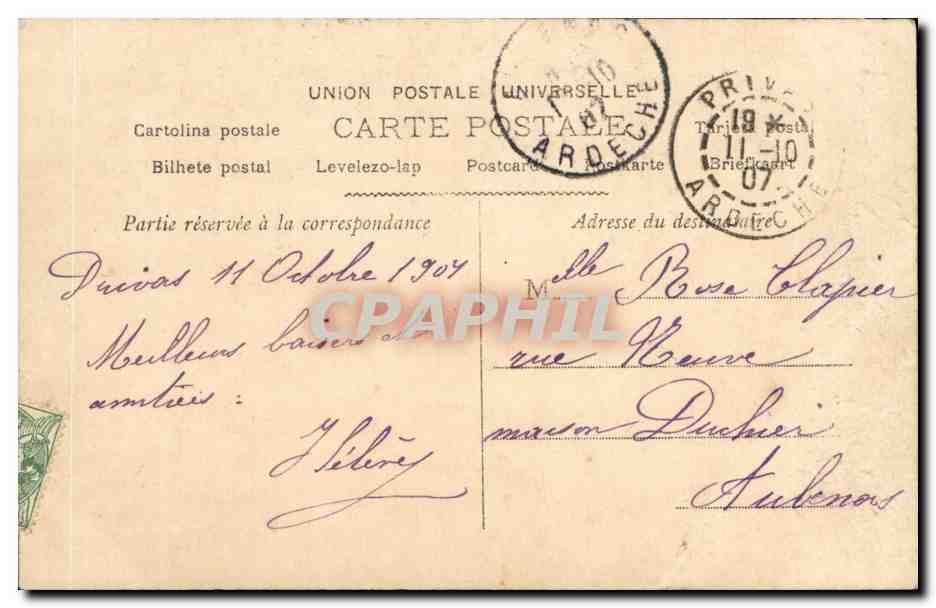 UNION POSTALE UNIVERSELLE
CARTE POSTALE
Cartolina postale
Tarjeta posta
Bilhete postal Levelezo-lap Postcard Postkarte Briefkaart
10
07
ARDECHE
PRIV
18 *
11 -10
07
ARDECHE
Partie réservée à la correspondance
Privas 11 Octobre 1907
Meilleurs baisers et
amitiés :
Hélène
Adresse du destinataire
Melle Rose Clapier
rue Neuve
maison Duchier
Aubenas
CPAPHIL